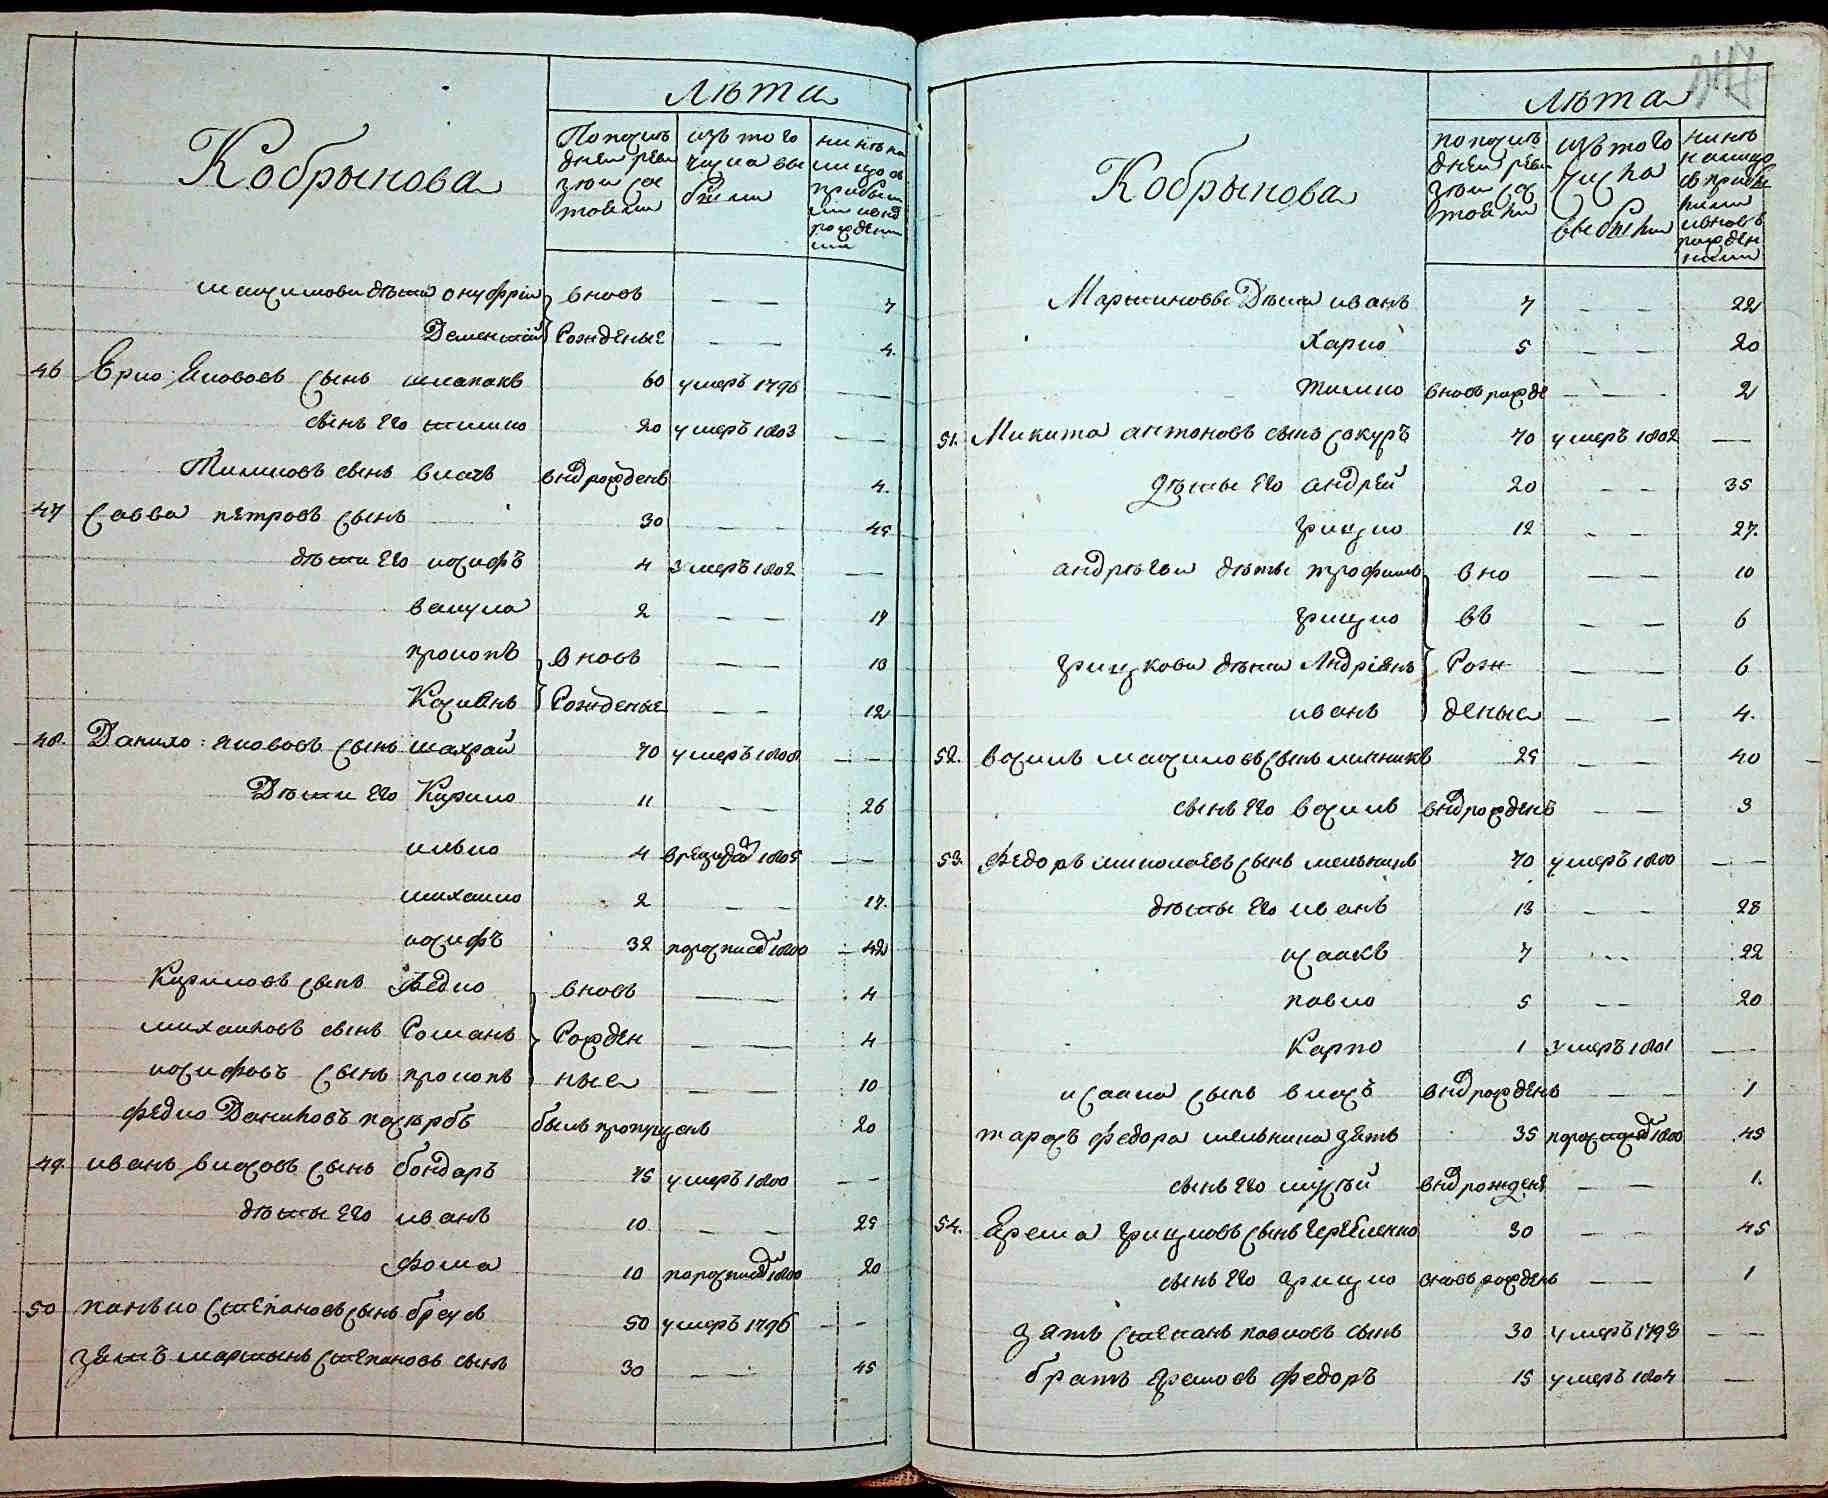 Лѣта
Кобрынова
По послѣ
дней реви
зіи сос
тояли
изъ того
числа вы
были
нинѣ на
лицо съ
прибыл
ими и внов
рожденн
ими
Максимови дѣти онуфрій вновь — — 7
Дементій Рожденые — — 4.
46 Ярко Якововъ сынъ шлапакъ 60 умеръ 1796 —
сынъ его тимко 20 умеръ 1803 — —
Тимковъ сынъ власъ внов рожденъ 4.
47 Савва петровъ сынъ 30 — — 45
дѣти его иосифъ 4 умеръ 1802 —
вакула 2 — — 17
прокопъ вновь — — 13
Касиянъ Рожденые — — 12
48. Данило Якововъ сынъ шахрай 70 умеръ 1808 — —
Дѣти его Кирило 11 — — 26
илько 4 1805 — —
михайло 2 — — 17.
иосифъ 32 1800 — 42
Кириловъ сынъ Федко вновь — — 4
михайловъ сынъ Романъ Рожден — — 4
иосифовъ сынъ прокопъ ные — — 10
Федко Даниловъ былъ пропущенъ 20
49. иванъ власовъ сынъ бондаръ 75 умеръ 1800 — —
дѣты его иванъ 10 — — 25
Фома 10 1800 20
50 панько Степановъ сынъ бреусъ 50 умеръ 1796 — —
зять мартынъ Степановъ сынъ 30 — — 45
Лѣта
Кобрынова
по послѣ
дней реви
зіи сос
тояли
изъ того
числа
выбыли
нинѣ
налицо
съ прибы
лими
и вновь
рожден
ними
Мартиновы Дѣти иванъ 7 — — 22
Харко 5 — — 20
тимко вновь рожде — — 2
51. Микита антоновъ сынъ сокуръ 70 умеръ 1802 —
дѣты его андрей 20 — — 35
грицко 12 — — 27.
андрѣеви дѣты трофимъ вно — — 10
грицко въ — — 6
грицкови дѣти Андріянъ Рож — — 6
иванъ деные — — 4.
52. василь максимовъ сынъ линникъ 25 — — 40
сынъ его василь внов рожденъ — — 3
53. Федоръ миколаевъ сынъ мельникъ 70 умеръ 1800 — —
дѣты его иванъ 13 — — 28
исаакъ 7 — — 22
павло 5 — — 20
Карпо 1 умеръ 1801 —
исаака сынъ власъ внов рожденъ — — 1
тарасъ федора мельника зять 35 1800 45
сынъ его внов рожденъ — — 1.
54. Ярема грицковъ сынъ 30 — — 45
сынъ его грицко вновь рожденъ — — 1
зять Степанъ павловъ сынъ 30 умеръ 1798 — —
братъ яремовъ федоръ 15 умеръ 1804 —